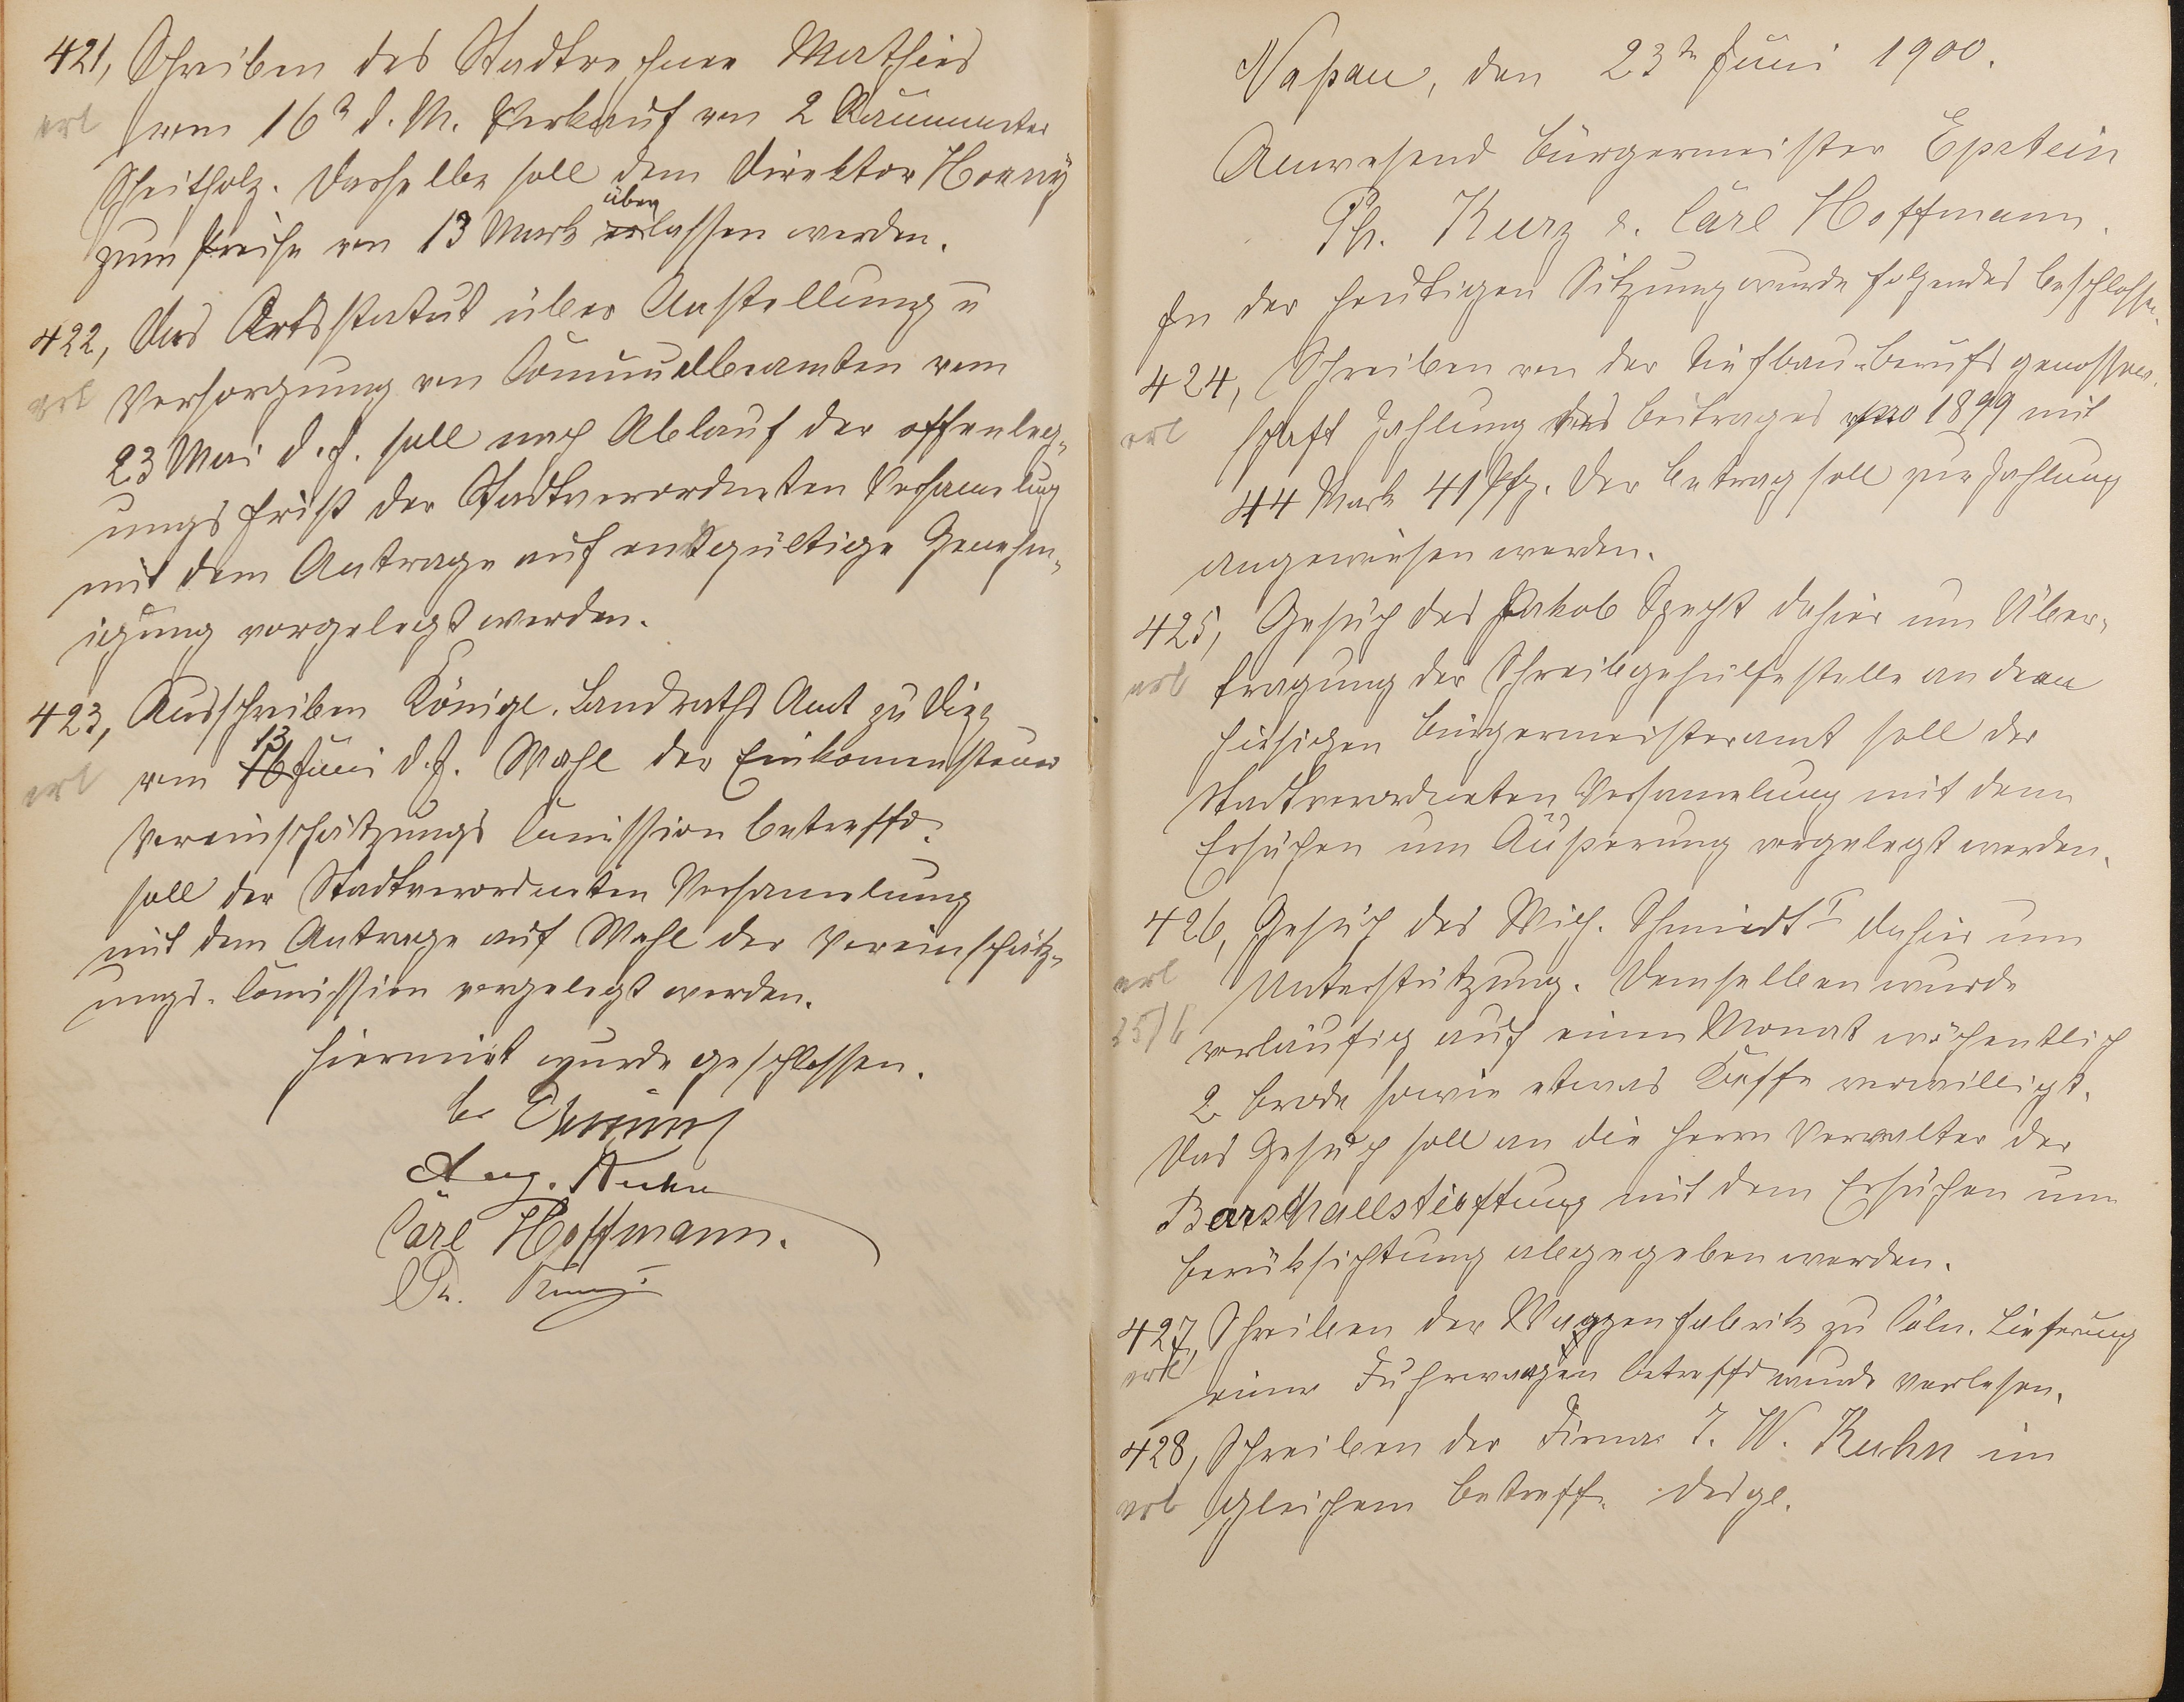 421, Schreiben des Stadtrechner Mathies
erl vom 16ᵗ d. M. Verkauf von 2 Raummeter
Scheitholz. Dasselbe soll dem Direktor Horny
zum Preise von 13 Mark überlassen werden.
422, Das Ortsstatut über Anstellung u
erl Versorgung von Communalbeamten vom
23 Mai d. J. soll nach Ablauf der offenleg-
ungs frist der Stadtverordneten Versammlung
mit dem Antrage auf entgültige Genehm-
igung vorgelegt werden.
423, Ausschreiben Königl. Landraths Amt zu Diez
erl vom 13 Juni d. J. Wahl der Einkommensteuer
Vereinschätzungs Comission betreffd.
soll der Stadtverordneten Versamelung
mit dem Antrage auf Wahl der Vereinschätz-
ungs-Comission vorgelegt werden.
Hiermit wurde geschlossen.
Aug. Kuhn
Carl Hoffmann.
Ph. Kurz
Naßau, den 23ᵗᵉ Juni 1900.
Anwesend Bürgermeister Epstein
Ph. Kurz u. Carl Hoffmann.
In der heutigen Sitzung wurde folgendes beschlossen.
424, Schreiben von der Tiefbau-Berufsgenossen-
erl schaft Zahlung des Beitrages pro 1899 mit
44 Mark 41 Pfg. Der Betrag soll zur Zahlung
angewiesen werden.
425, Gesuch des Jakob Specht dahier um Über-
erl tragung der Schreibgehülfestelle an dem
hiesigen Bürgermeisteramt soll der
Stadtverordneten Versamelung mit dem
Ersuchen um Äußerung vorgelegt werden.
426, Gesuch des Wilh. Schmidt I dahier um
erl Unterstützung. Demselben wurde
25/6 vorläufig auf einen Monat wöchentlich
2 Brode sowie etwas Kaffe verwilligt.
Das Gesuch soll an die Herrn Verwalter der
Barsthallstieftung mit dem Ersuchen um
Berüksichtung abgegeben werden.
427, Schreiben der Waggenfabrik zu Cöln. Lieferung
erl eines Fuhrwagen betreffd wurde verlesen.
428, Schreiben der Firma J. W. Kuhn im
erl gleichem Betreff. desgl.